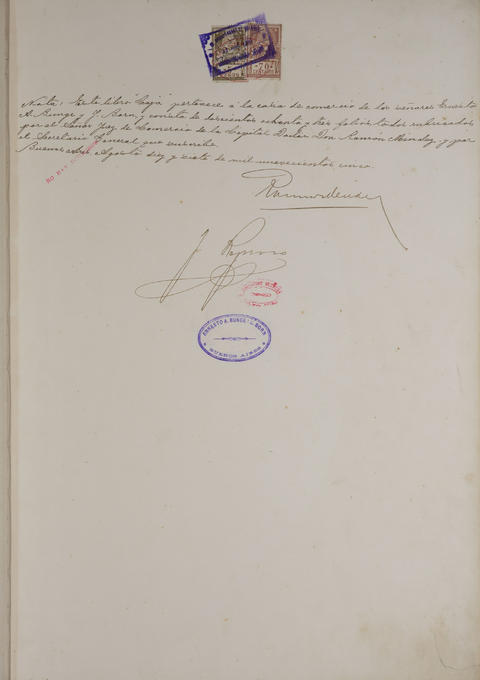 Nota: Este libro "Caja" pertenece a la casa de comercio de los señores Ernesto
A. Bunge y J. Born, y consta de doscientos ochenta y tres folios todos rubricados
por el Señor Juez de Comercio de la Capital Doctor Don Ramón Méndez y por
el Secretario General que suscribe.
Buenos Aires Agosto diez y siete de mil novecientos cinco.
Ramon Mendez
ERNESTO A. BUNGE & J. BORN
BUENOS AIRES